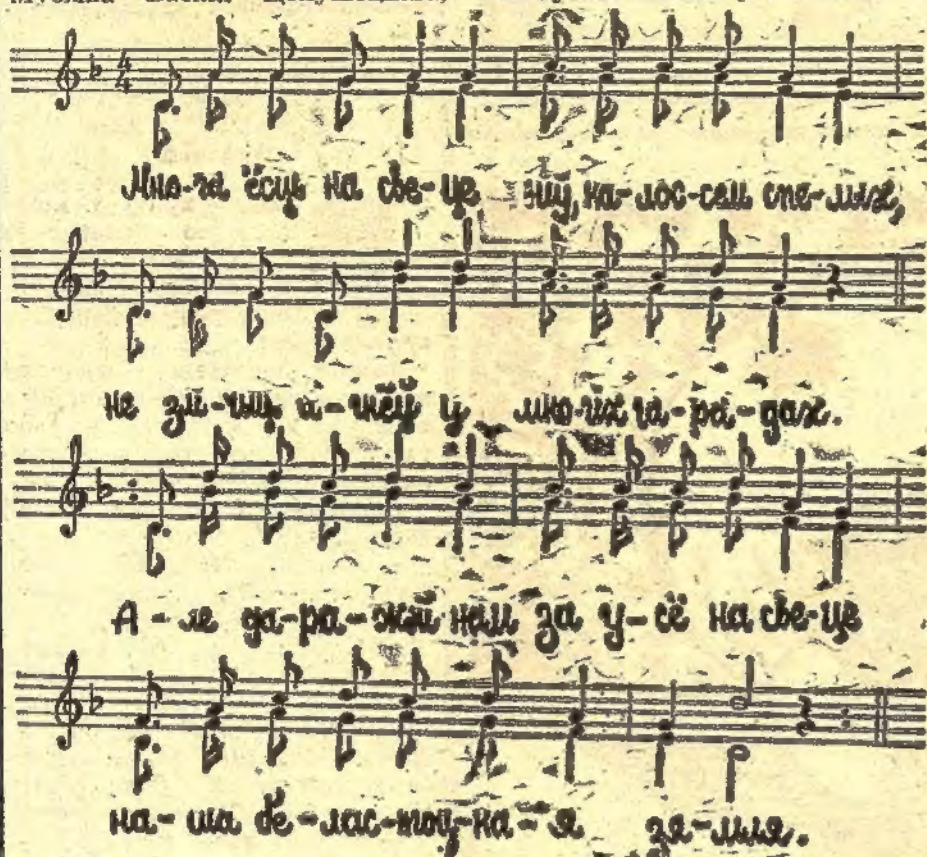 Мно-га ёсць на све-це ніў, ка-лос-сем спе-лых,
не злі-чыць а-гнёў у мно-гіх га-ра-дах.
А-ле да-ра-жэй нам за у-сё на све-це
на-ша бе-ла-ст-ка-я зя-мля.